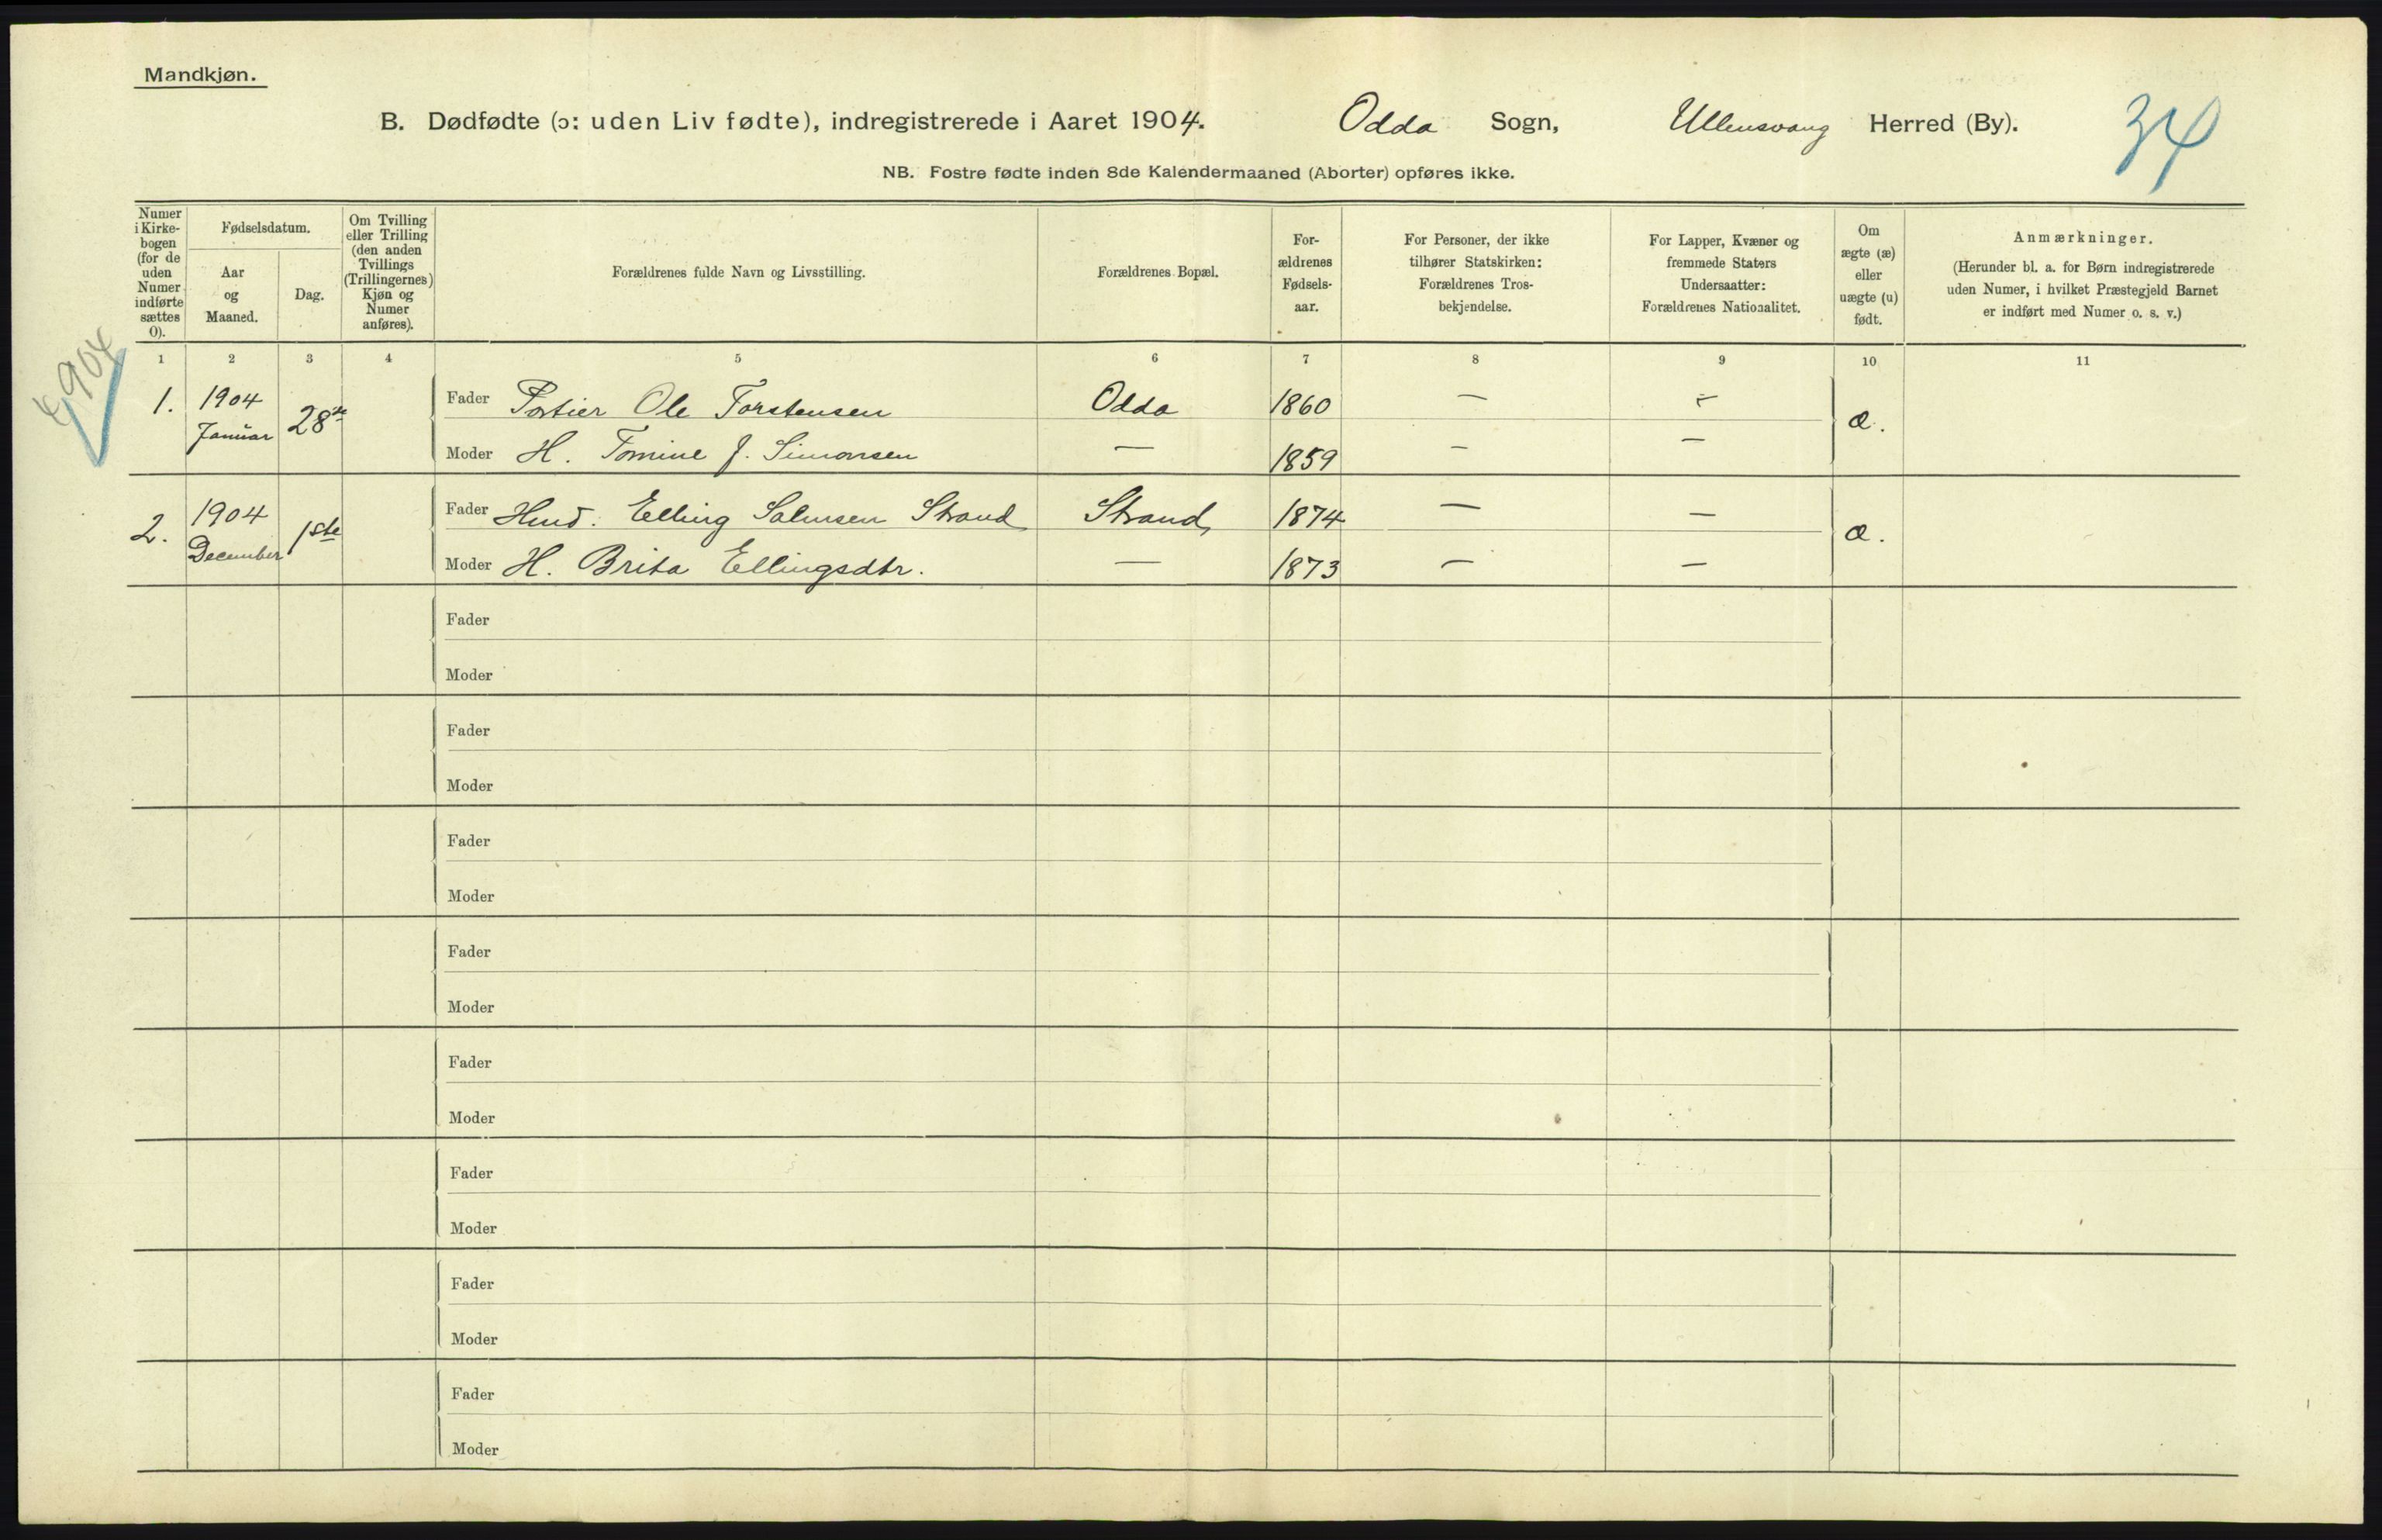 Mandkjøn.
B. Dødfødte (ɔ: uden Liv fødte), indregistrerede i Aaret 1904. Odda Sogn, Ullensvang Herred (By).
34
NB. Fostre fødte inden 8de Kalendermaaned (Aborter) opføres ikke.
Numer
i Kirke-
bogen
(for de
uden
Numer
indførte
sættes
0).
Fødselsdatum.
Aar
og
Maaned.
Dag.
Om Tvilling
eller Trilling
(den anden
Tvillings
(Trillingernes)
Kjøn og
Numer
anføres).
Forældrenes fulde Navn og Livsstilling.
Forældrenes Bopæl.
For-
ældrenes
Fødsels-
aar.
For Personer, der ikke
tilhører Statskirken:
Forældrenes Tros-
bekjendelse.
For Lapper, Kvæner og
fremmede Staters
Undersaatter:
Forældrenes Nationalitet.
Om
ægte (æ)
eller
uægte (u)
født.
Anmærkninger.
(Herunder bl. a. for Børn indregistrerede
uden Numer, i hvilket Præstegjeld Barnet
er indført med Numer o. s. v.)
1 2 3 4 5 6 7 8 9 10 11
1904
1. 1904 Januar 28de
Fader Portier Ole Torstensen Odda 1860 — — æ.
Moder H. Tomine J. Simonsen — 1859 — —
2. 1904 December 1ste
Fader Husd. Elling Salmsen Strand Strand, 1874 — — æ.
Moder H. Brita Ellingsdtr. — 1873 — —
Fader
Moder
Fader
Moder
Fader
Moder
Fader
Moder
Fader
Moder
Fader
Moder
Fader
Moder
Fader
Moder